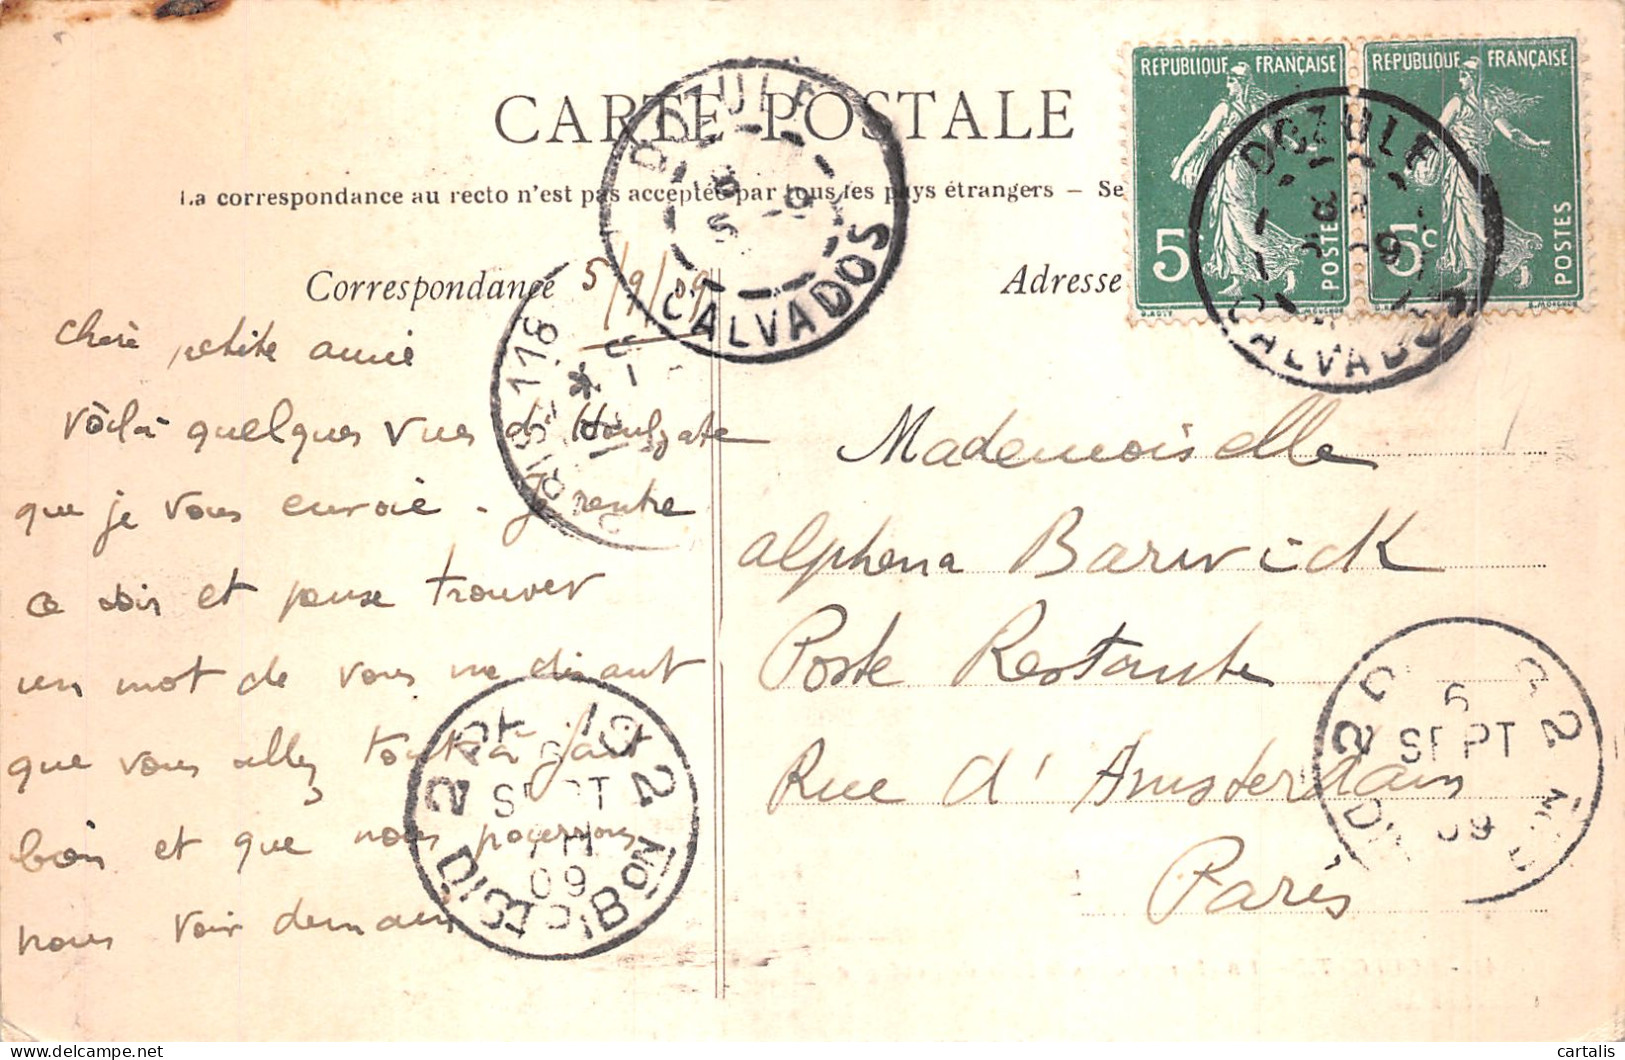 CARTE POSTALE
La correspondance au recto n'est pas acceptée par tous les pays étrangers – Se
Correspondance
5/9/09
Adresse
REPUBLIQUE FRANÇAISE
5
POSTES
REPUBLIQUE FRANÇAISE
5c
POSTES
DOZULE
5 - 9
CALVADOS
DOZULE
CALVADOS
chère petite amie
voilà quelques vues d'Houlgate
que je vous envoie. Je rentre
ce soir et pense trouver
un mot de vous me disant
que vous allez tout à fait
bien et que nous pourrons
nous voir demain
Mademoiselle
Alphena Barwick
Poste Restante
Rue d'Amsterdam
Paris
PARIS 118
SEPT
09
DISTRIBON
6
SEPT
09
cartalis